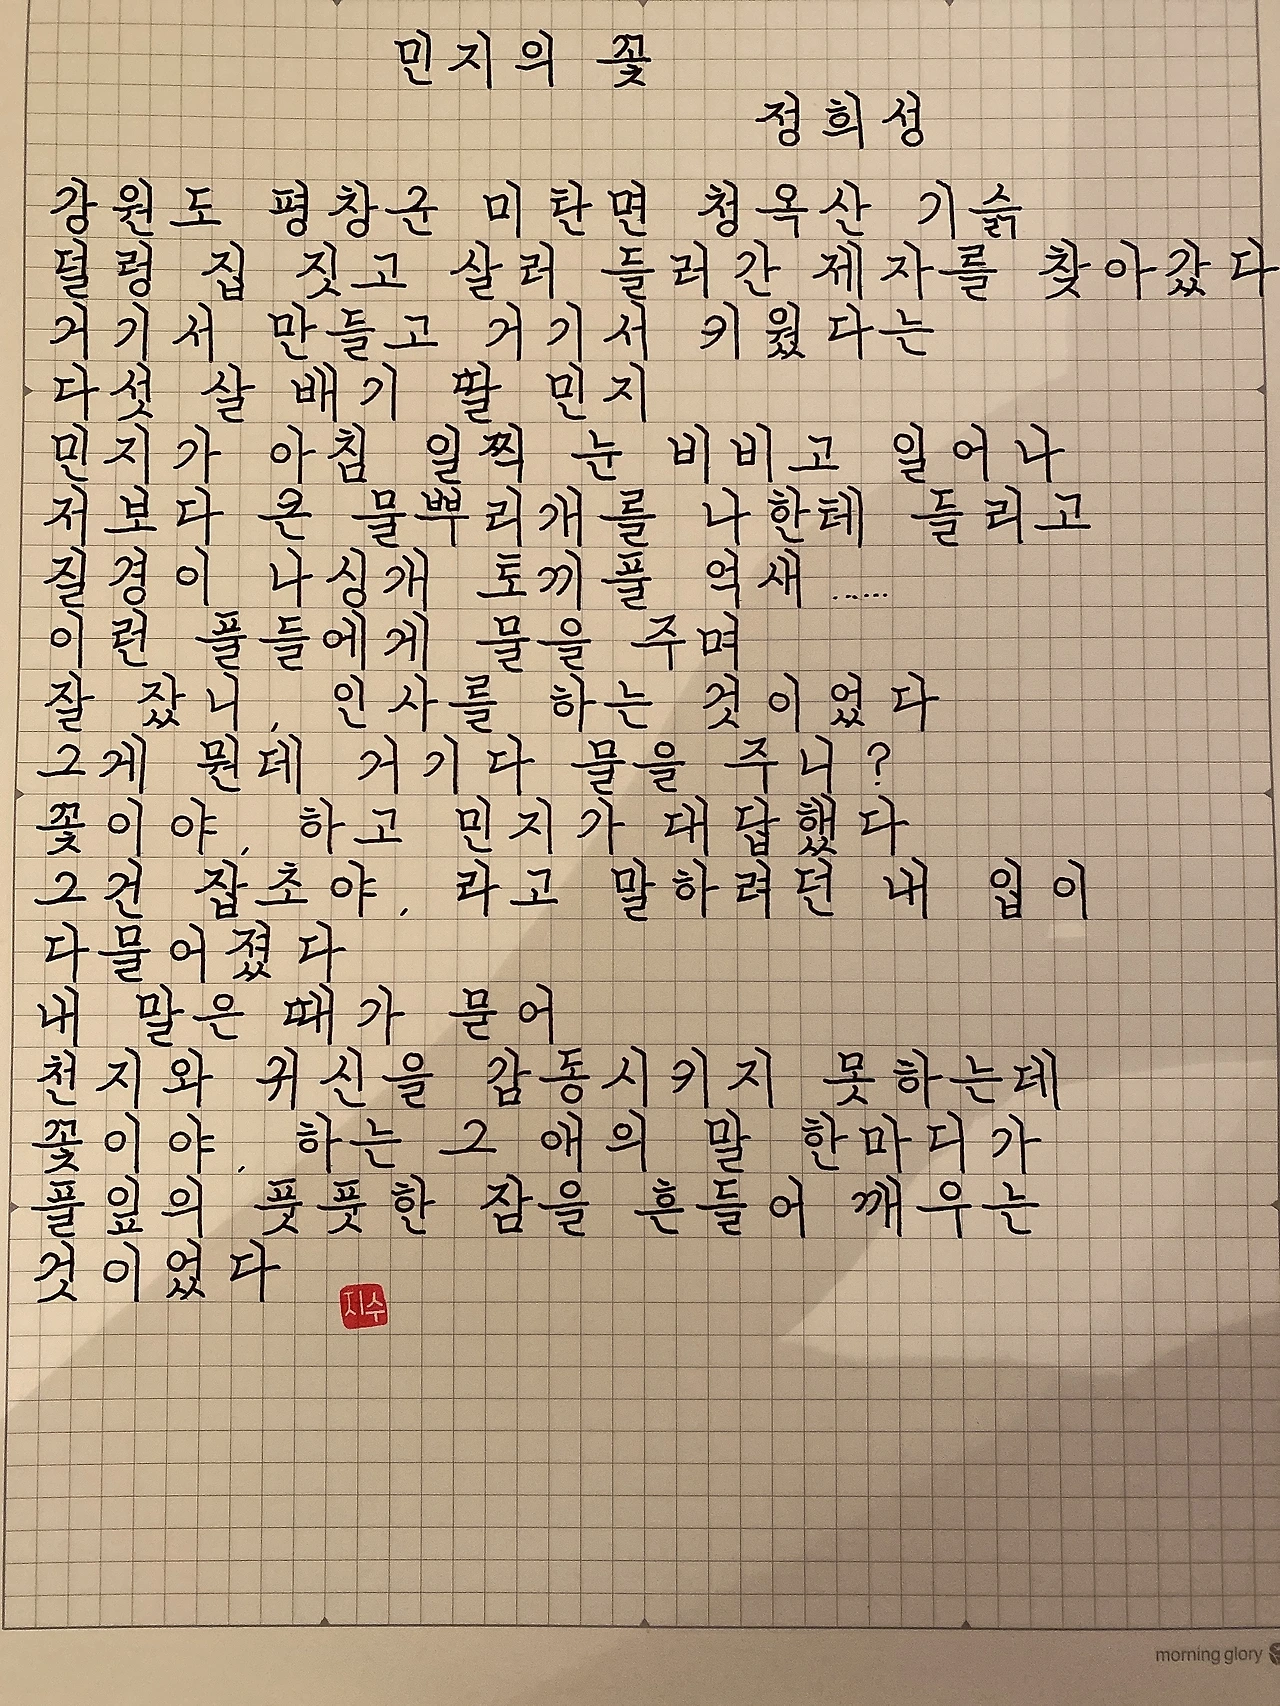 민지의 꽃
정희성
강원도 평창군 미탄면 청옥산 기슭
덜렁 집 짓고 살러 들러간 제자를 찾아갔다
거기서 만들고 거기서 키웠다는
다섯 살 배기 딸 민지
민지가 아침 일찍 눈 비비고 일어나
저보다 큰 물뿌리개를 나한테 들리고
질경이 나싱개 토끼풀 억새 ......
이런 풀들에게 물을 주며
잘 잤니, 인사를 하는 것이었다
그게 뭔데 거기다 물을 주니?
꽃이야, 하고 민지가 대답했다
그건 잡초야, 라고 말하려던 내 입이
다물어졌다
내 말은 때가 묻어
천지와 귀신을 감동시키지 못하는데
꽃이야, 하는 그 애의 말 한마디가
풀잎의 풋풋한 잠을 흔들어 깨우는
것이었다
지수
morning glory